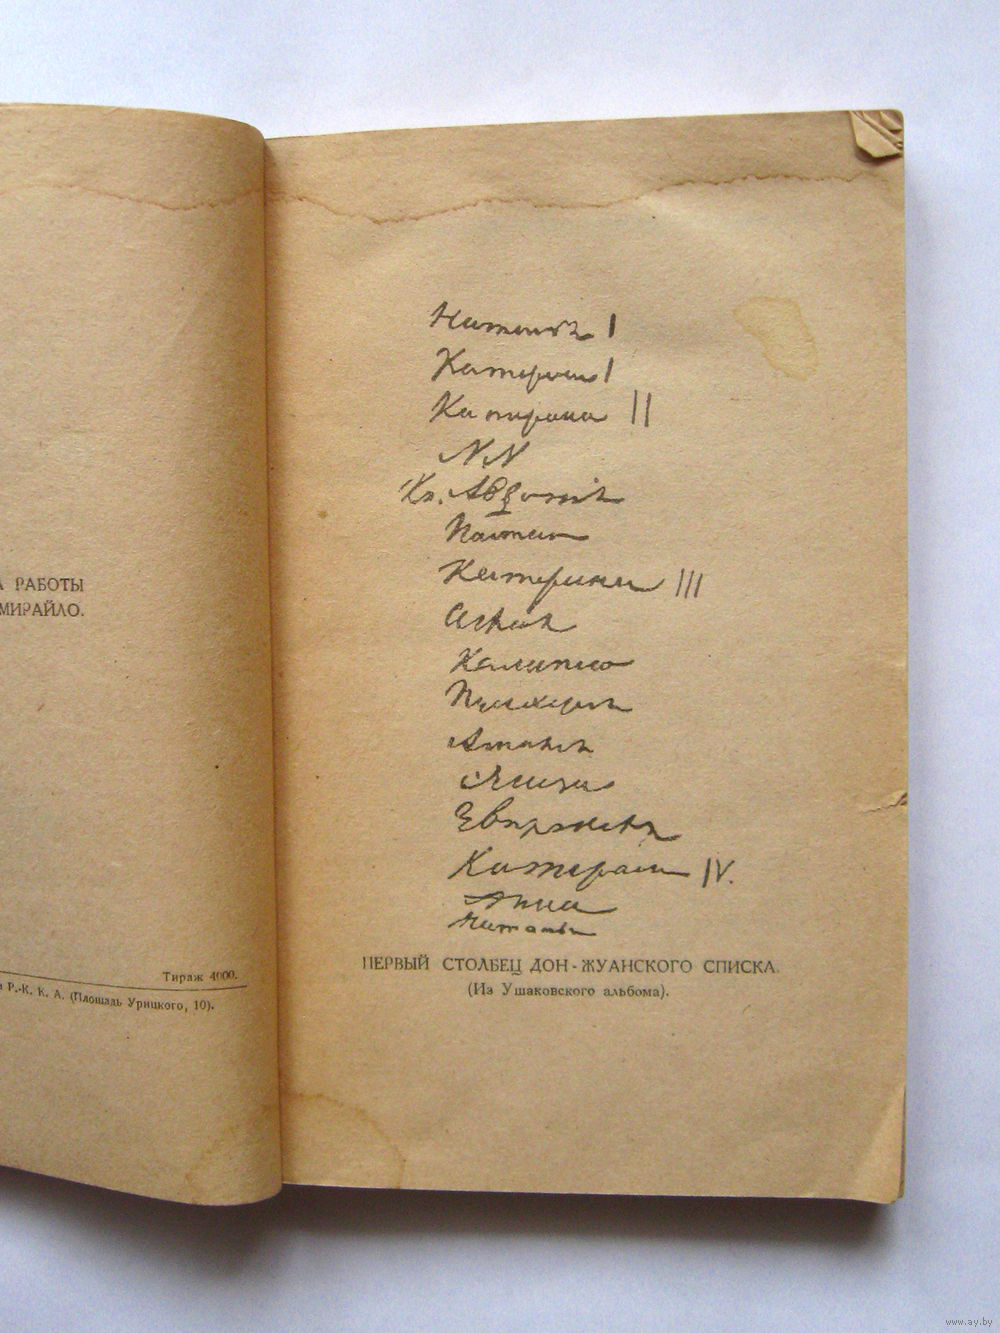 А РАБОТЫ
МИРАЙЛО.
Тираж 4000.
и Р.-К. К. А. (Площадь Урицкого, 10).
Наталья I
Катерина I
Катерина II
NN
Кн. Авдотия
Настасья
Катерина III
Аглая
Калипсо
Пульхерия
Амалия
Элиза
Евпраксея
Катерина IV.
Анна
Наталья
ПЕРВЫЙ СТОЛБЕЦ ДОН-ЖУАНСКОГО СПИСКА.
(Из Ушаковского альбома).
www.ay.by